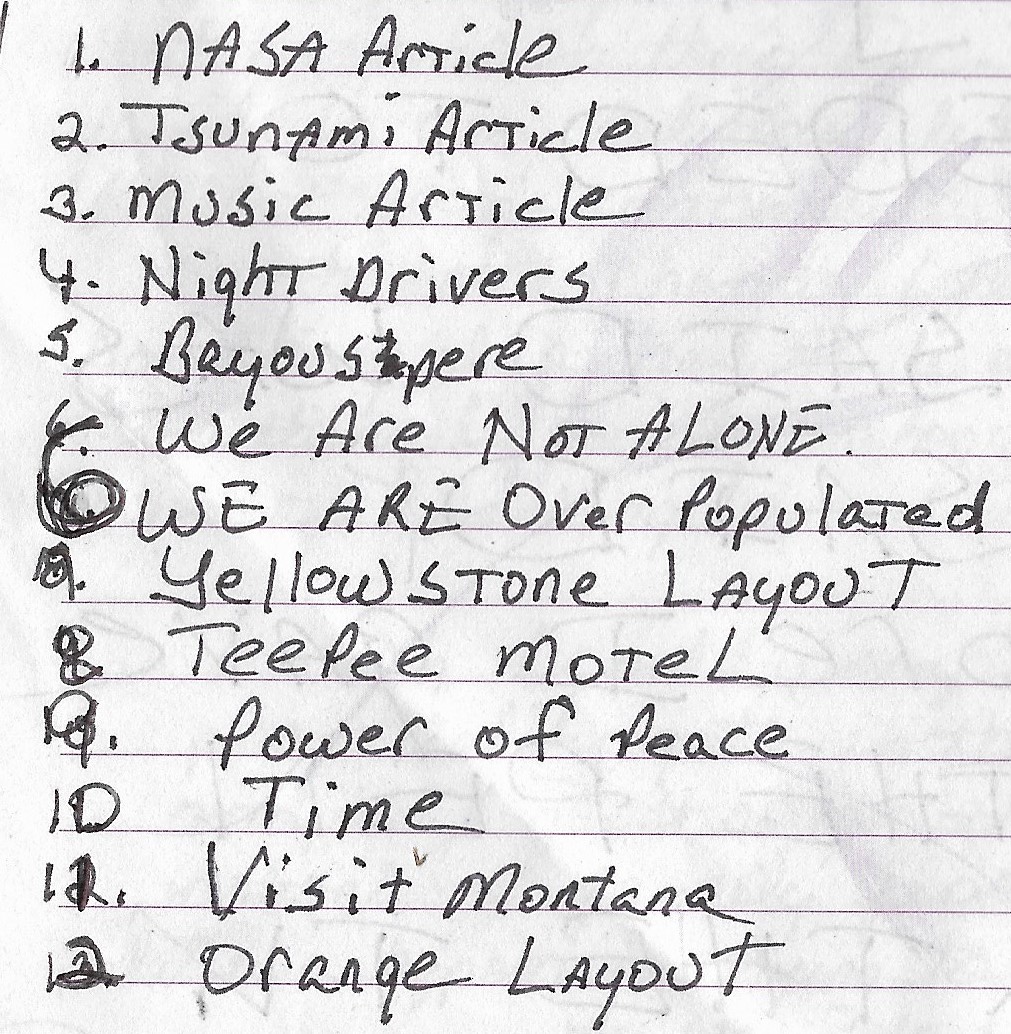 1. NASA Article
2. Tsunami Article
3. Music Article
4. Night Drivers
5.
6. We Are Not ALONE.
WE ARE Over Populated
Yellowstone LAYOUT
8. TeePee Motel
9. Power of Peace
10 Time
11. Visit Montana
12. Orange LAYOUT